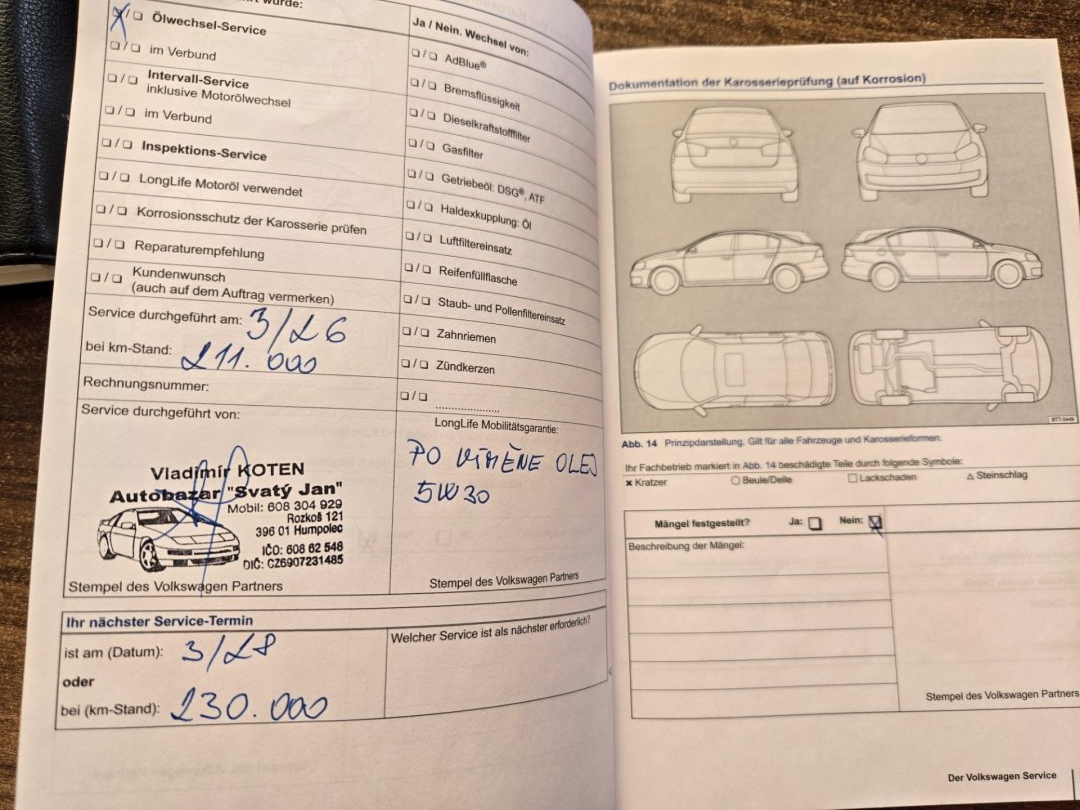 wurde:
☒/❏ Ölwechsel-Service
❏/❏ im Verbund
❏/❏ Intervall-Service
inklusive Motorölwechsel
❏/❏ im Verbund
❏/❏ Inspektions-Service
❏/❏ LongLife Motoröl verwendet
❏/❏ Korrosionsschutz der Karosserie prüfen
❏/❏ Reparaturempfehlung
❏/❏ Kundenwunsch
(auch auf dem Auftrag vermerken)
Service durchgeführt am: 3/26
bei km-Stand: 211.000
Rechnungsnummer:
Service durchgeführt von:
Vladimír KOTEN
Autobazar "Svatý Jan"
Mobil: 608 304 929
Rozkoš 121
396 01 Humpolec
IČO: 608 62 548
DIČ: CZ6907231485
Stempel des Volkswagen Partners
Ja / Nein. Wechsel von:
❏/❏ AdBlue®
❏/❏ Bremsflüssigkeit
❏/❏ Dieselkraftstofffilter
❏/❏ Gasfilter
❏/❏ Getriebeöl: DSG®, ATF
❏/❏ Haldexkupplung: Öl
❏/❏ Luftfiltereinsatz
❏/❏ Reifenfüllflasche
❏/❏ Staub- und Pollenfiltereinsatz
❏/❏ Zahnriemen
❏/❏ Zündkerzen
❏/❏ ....................
LongLife Mobilitätsgarantie:
PO VÝMĚNE OLEJ
5W30
Stempel des Volkswagen Partners
Ihr nächster Service-Termin
ist am (Datum): 3/28
oder
bei (km-Stand): 230.000
Welcher Service ist als nächster erforderlich?
Dokumentation der Karosserieprüfung (auf Korrosion)
Abb. 14 Prinzipdarstellung. Gilt für alle Fahrzeuge und Karosserieformen.
Ihr Fachbetrieb markiert in Abb. 14 beschädigte Teile durch folgende Symbole:
× Kratzer ○ Beule/Delle □ Lackschaden △ Steinschlag
Mängel festgestellt? Ja: ❏ Nein: ☒
Beschreibung der Mängel:
Stempel des Volkswagen Partners
Der Volkswagen Service